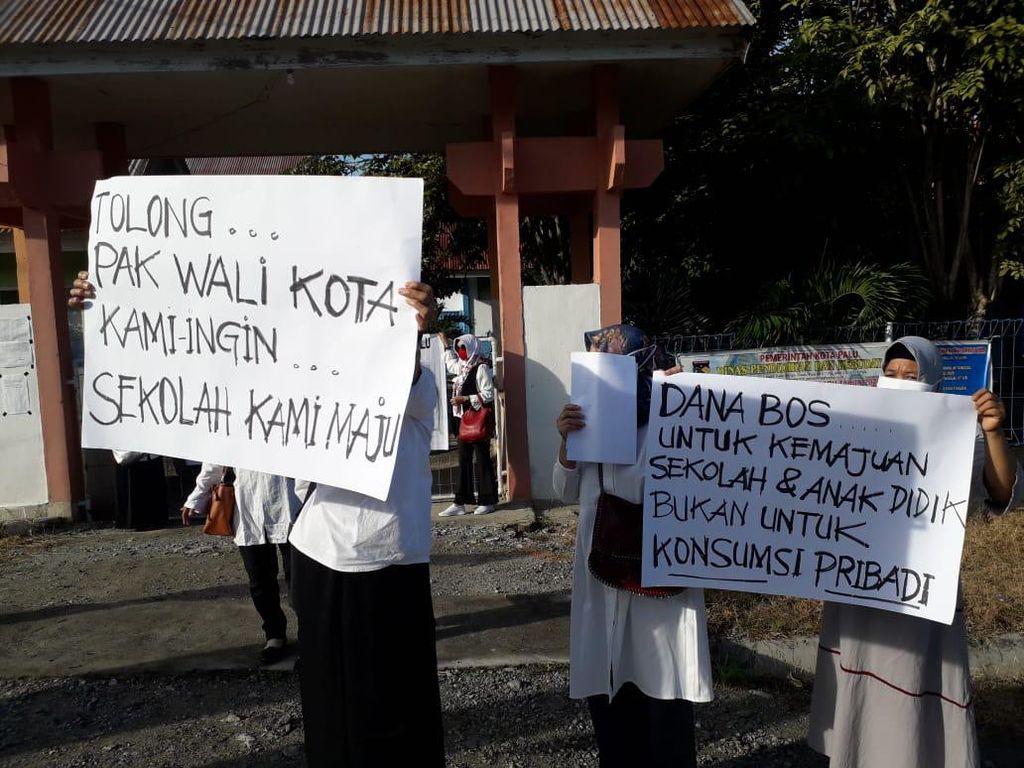 TOLONG ...
PAK WALI KOTA
KAMI-INGIN ...
SEKOLAH KAMI MAJU
PEMERINTAH KOTA PALU
DANA BOS ......
UNTUK KEMAJUAN
SEKOLAH & ANAK DIDIK
BUKAN UNTUK
KONSUMSI PRIBADI